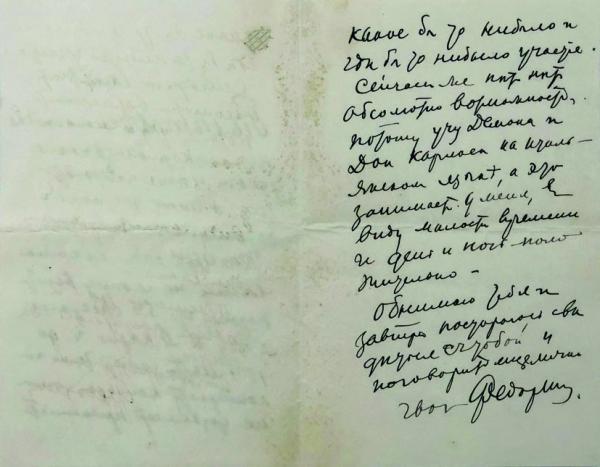 какое бы то нибыло и
где бы то нибыло участье.
Сейчас же нит нит
абсолютно возможности,
потому учу Демона и
Дон Карлоса на италь-
янском языке, а это
занимает у меня, в
виду малости времени
и день и ночь поло
жительно –
Обнимаю тебя и
завтра постараюсь сви
диться с тобой и
поговорить лично
твой Федор